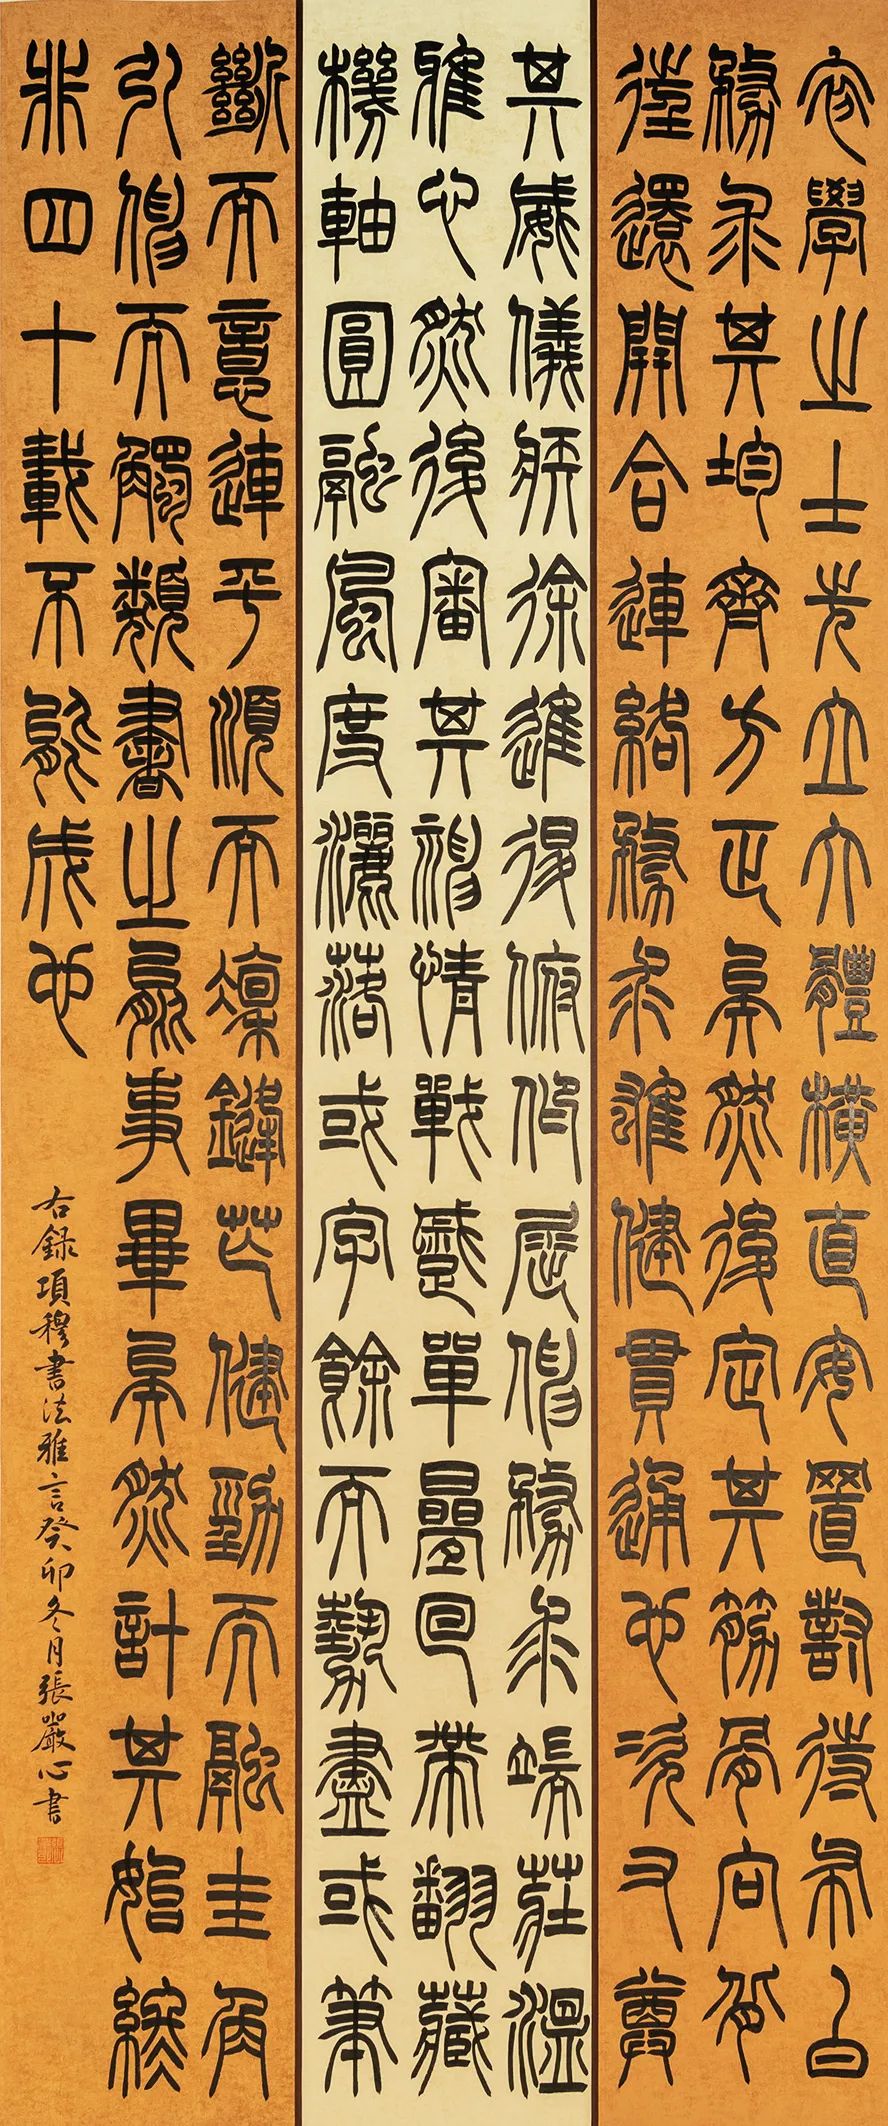 初學之士先立大體橫直安置對待布白
務求其均齊方正矣然後定其筋骨向背
往還開合連絡務求雄健貫通也次又尊
其威儀疾徐進退俯仰屈伸務求端莊溫
雅也然後審其神情戰蹙單疊回帶翻藏
機軸圓融風度灑落或字餘而勢盡或筆
斷而意連平順而凜鋒芒健勁而融圭角
引伸而觸類書之能事畢矣然計其始終
非四十載不能成也
右錄項穆書法雅言癸卯冬月張嚴心書